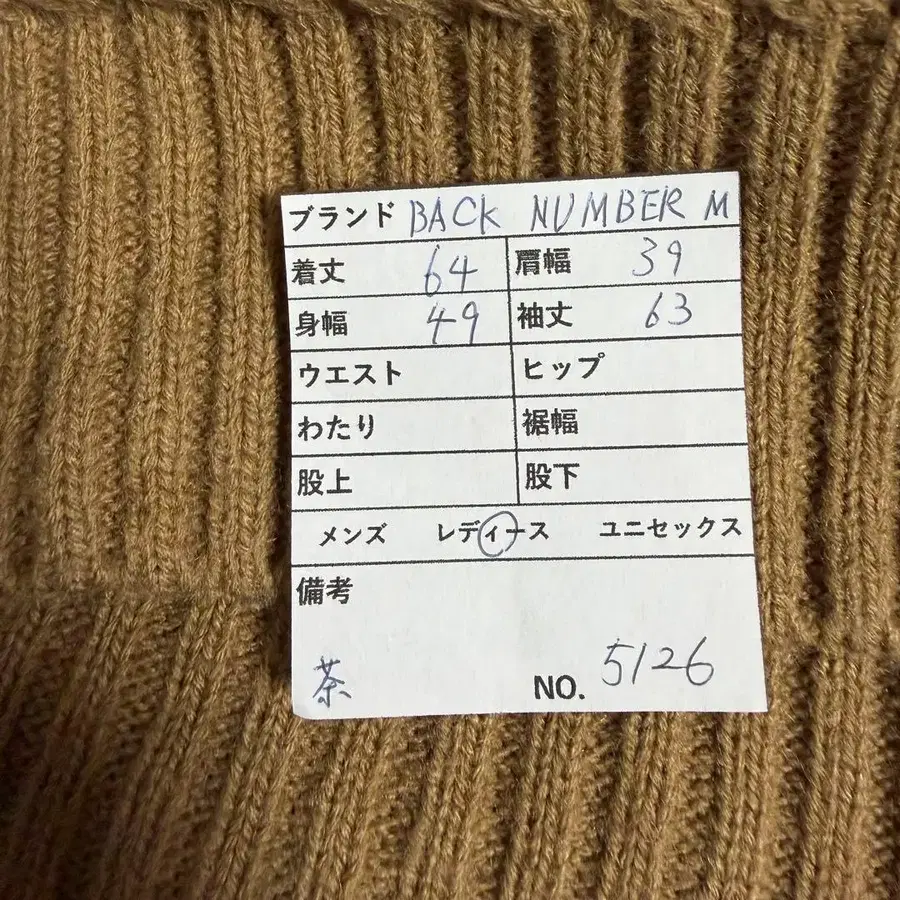 ブランド BACK NUMBER M
着丈 64 肩幅 39
身幅 49 袖丈 63
ウエスト ヒップ
わたり 裾幅
股上 股下
メンズ レディース ユニセックス
備考
茶 NO. 5126